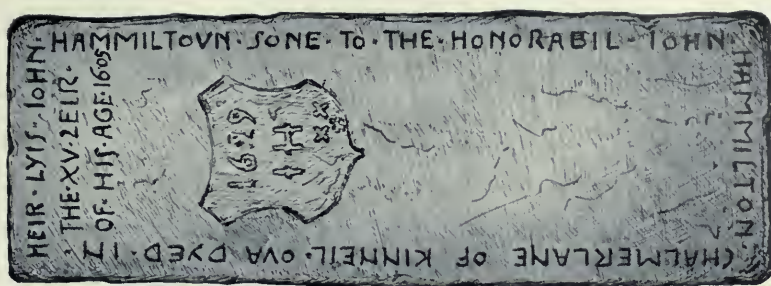 HEIR·LYIS·IOHN·
HAMMILTOVN·SONE·TO·THE·HONORABIL·IOHN·
HAMMILTON·
CHALMERLANE OF KINNEIL·QVA DYED·IN·
THE·XV·ZEIR·
OF·HIS·AGE·1605
16·29
I H